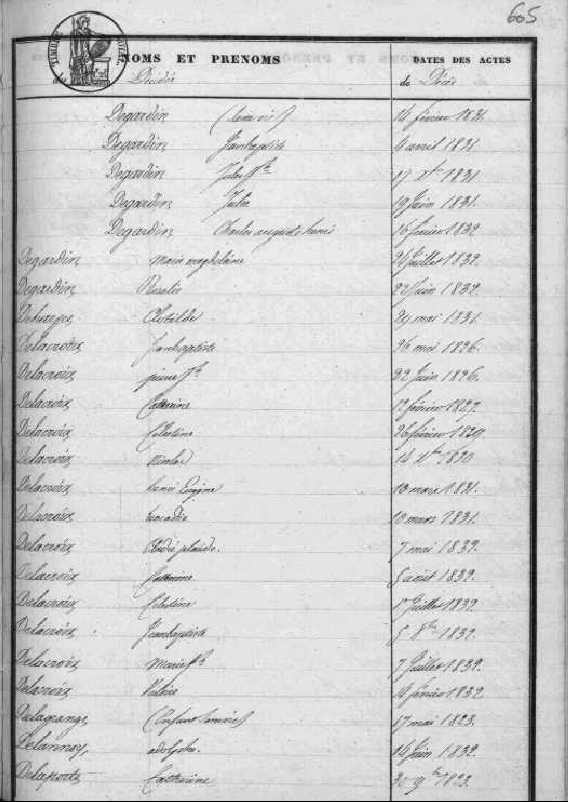 605
NOMS ET PRENOMS DATES DES ACTES
de Décès
Degardin 14 février 1831.
Degardin Jeanbaptiste 4 avril 1831
Degardin Jules Jh 17 Xbre 1831.
Degardin Julie 19 Juin 1831.
Degardin Charles auguste 16 février 1832.
Degardin Marie magdelaine 26 Juillet 1832.
Degardin Rosalie 22 Juin 1832.
Clotilde 29 mai 1831.
Delacroix Jeanbaptiste 26 mai 1826.
Delacroix pierre Jh 22 Juin 1826.
Delacroix Catherine 12 février 1827.
Delacroix Célestine 26 février 1829
Delacroix Nicolas 14 1830
Delacroix Eugène 10 mars 1831.
Delacroix Leocadie 10 mars 1831.
Delacroix placide. 7 mai 1832.
Delacroix Catherine 5 août 1832.
Delacroix Célestine 17 Juillet 1832.
Delacroix Jeanbaptiste 5 8bre 1832.
Delacroix Marie Jh 7 Juillet 1832.
Delacroix Valérie 18 février 1832.
Delagrange (Enfant 17 mai 1823.
Delannoy adolphe. 14 Juin 1832.
Delaporte Catherine 20 9bre 1823.